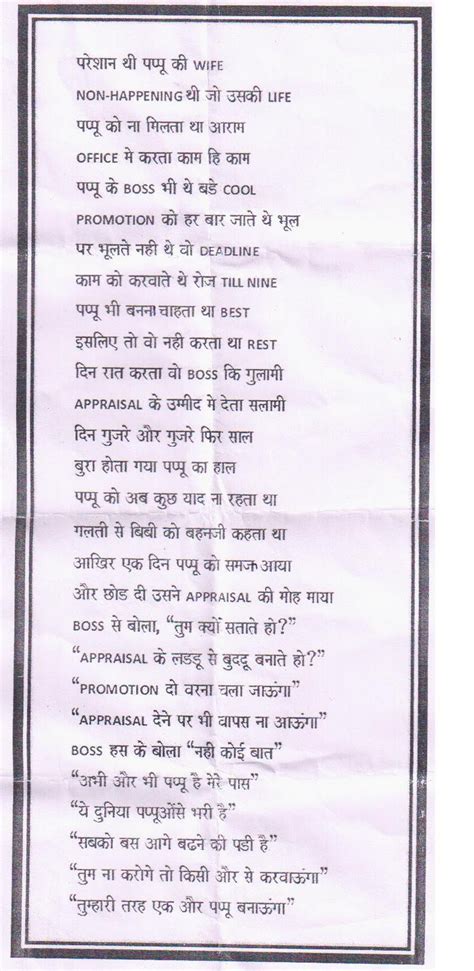 परेशान थी पप्पू की WIFE
NON-HAPPENING थी जो उसकी LIFE
पप्पू को ना मिलता था आराम
OFFICE मे करता काम हि काम
पप्पू के BOSS भी थे बडे COOL
PROMOTION को हर बार जाते थे भूल
पर भूलते नही थे वो DEADLINE
काम को करवाते थे रोज TILL NINE
पप्पू भी बनना चाहता था BEST
इसलिए तो वो नही करता था REST
दिन रात करता वो BOSS कि गुलामी
APPRAISAL के उम्मीद मे देता सलामी
दिन गुजरे और गुजरे फिर साल
बुरा होता गया पप्पू का हाल
पप्पू को अब कुछ याद ना रहता था
गलती से बिबी को बहनजी कहता था
आखिर एक दिन पप्पू को समज आया
और छोड दी उसने APPRAISAL की मोह माया
BOSS से बोला, “तुम क्यों सताते हो?”
“APPRAISAL के लडडू से बुददू बनाते हो?”
“PROMOTION दो वरना चला जाऊंगा”
“APPRAISAL देने पर भी वापस ना आऊंगा”
BOSS हस के बोला “नही कोई बात”
“अभी और भी पप्पू है मेरे पास”
“ये दुनिया पप्पूओंसे भरी है”
“सबको बस आगे बढने की पडी है”
“तुम ना करोगे तो किसी और से करवाऊंगा”
“तुम्हारी तरह एक और पप्पू बनाऊंगा”